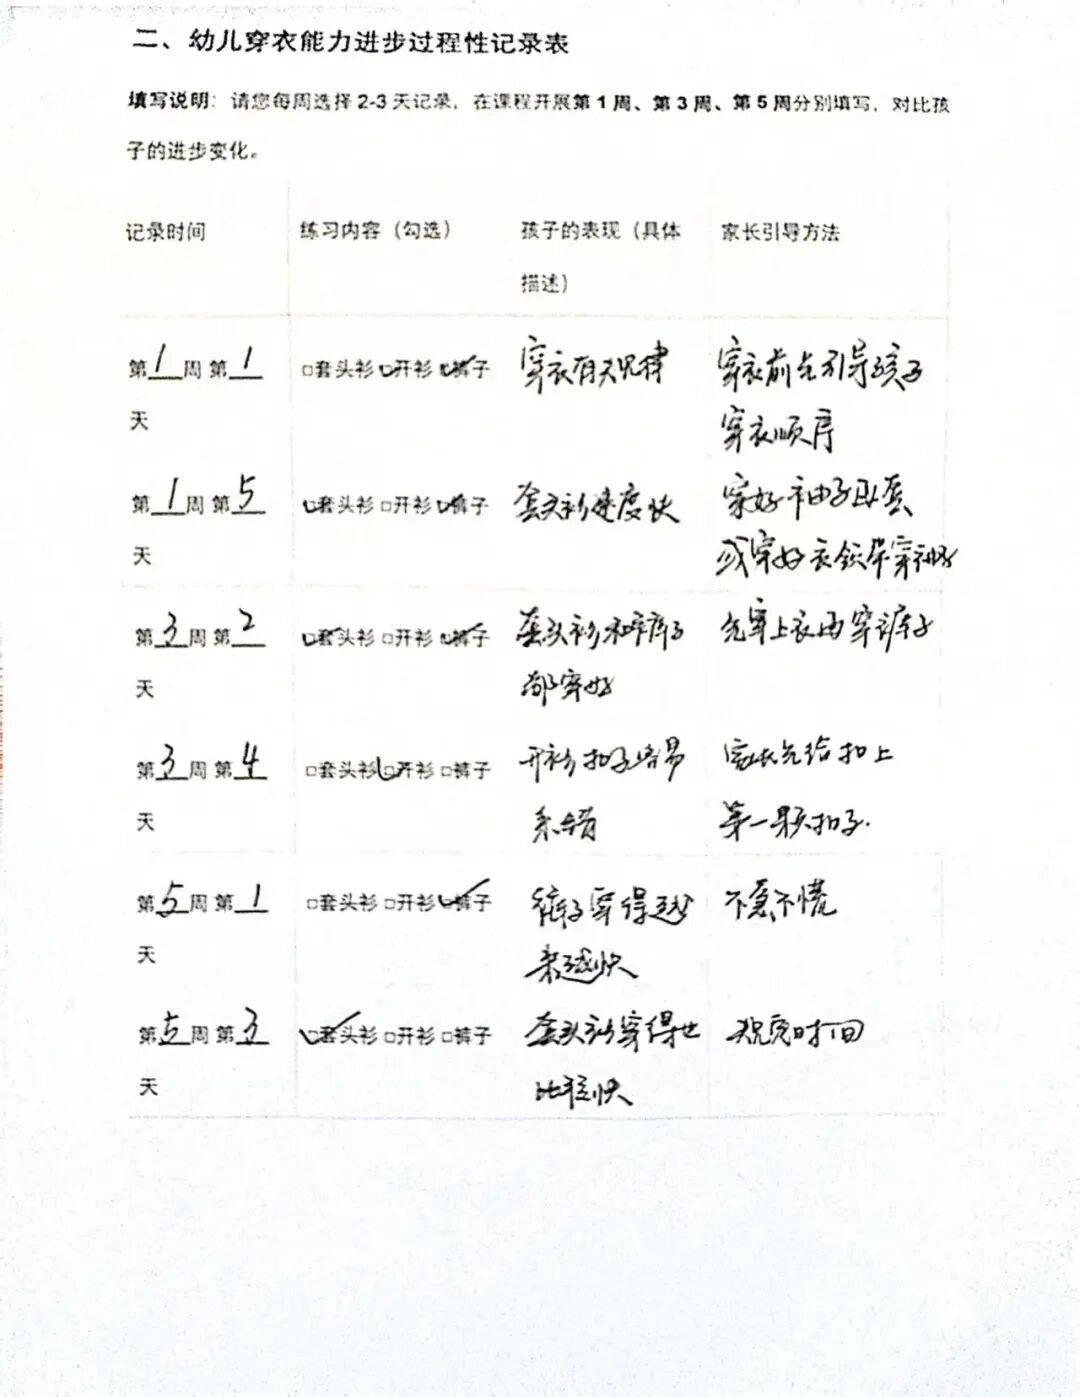 二、幼儿穿衣能力进步过程性记录表
填写说明：请您每周选择 2-3 天记录，在课程开展第 1 周、第 3 周、第 5 周分别填写，对比孩
子的进步变化。
记录时间 练习内容（勾选） 孩子的表现（具体 家长引导方法
描述）
第1周 第1 □套头衫 ☑开衫 ☑裤子 穿衣有规律 穿衣前先引导孩子
天 穿衣顺序
第1周 第5 ☑套头衫 □开衫 ☑裤子 套头衫速度快 穿好袖子再套
天 或穿好衣领
第3周 第2 ☑套头衫 □开衫 ☑裤子 套头衫和裤子 先穿上衣再穿裤子
天 都穿好
第3周 第4 □套头衫 ☑开衫 □裤子 开衫扣子容易 家长先给扣上
天 系错 第一颗扣子.
第5周 第1 □套头衫 □开衫 ☑裤子 裤子穿得越 不急不慌
天 来越快
第5周 第3 ☑套头衫 □开衫 □裤子 套头衫穿得也 规定时间
天 比较快